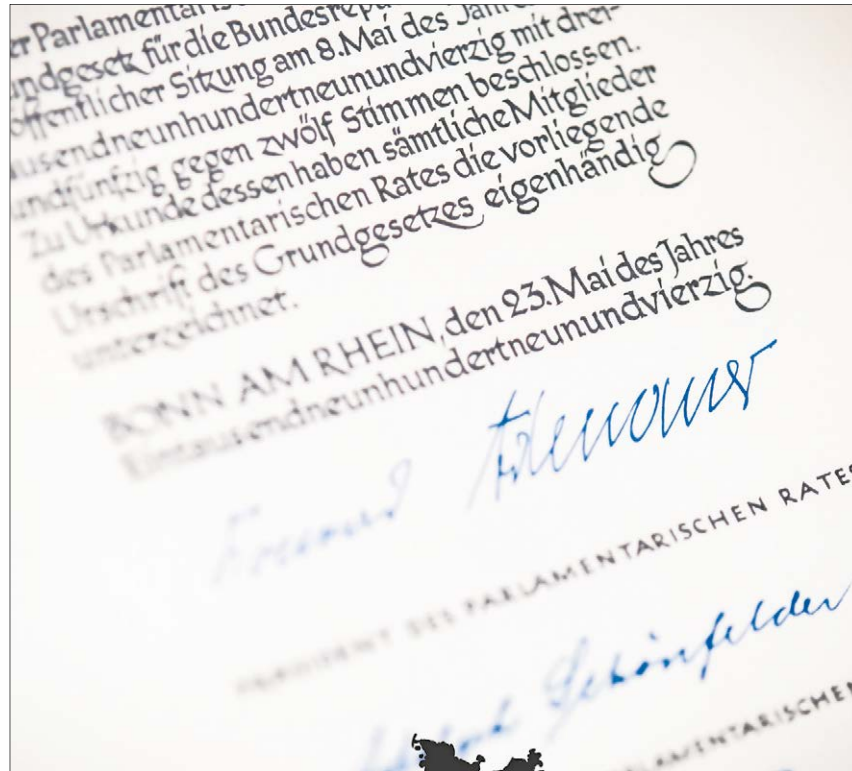 er Parlamentaris
ndgesetz für die Bundesrepu
öffentlicher Sitzung am 8. Mai des Jahre
ausendneunhundertneunundvierzig mit drei-
undfünfzig gegen zwölf Stimmen beschlossen.
Zu Urkunde dessen haben sämtliche Mitglieder
des Parlamentarischen Rates die vorliegende
Urschrift des Grundgesetzes eigenhändig
unterzeichnet.
BONN AM RHEIN, den 23. Mai des Jahres
Eintausendneunhundertneunundvierzig.
Konrad Adenauer
PRÄSIDENT DES PARLAMENTARISCHEN RATES
Schönfelder
PARLAMENTARISCHEN